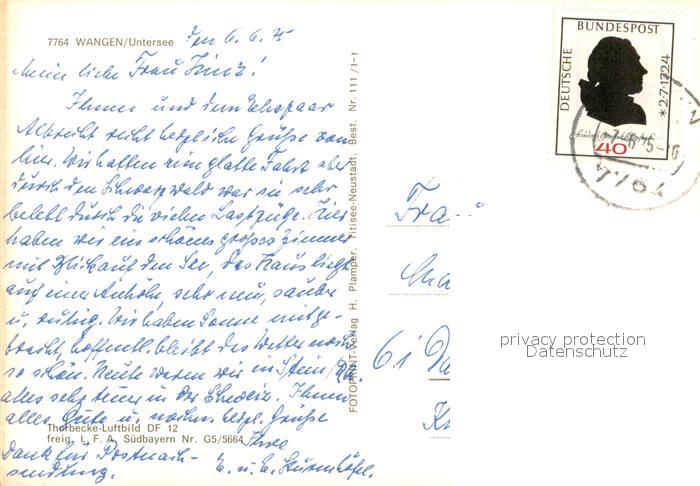 7764 WANGEN/Untersee
den 6.6.75
Meine liebe Frau
Ihnen und dem Ehepaar
Albrecht recht herzliche Grüße von
hier. Wir hatten eine glatte Fahrt aber
durch den Schwarzwald war sie sehr
belebt durch die vielen Lastzüge. Hier
haben wir ein schönes grosses Zimmer
mit Blick auf den See, das Haus liegt
auf einer Anhöhe, sehr neu, sauber
u. ruhig. Wir haben Sonne mitge-
bracht, hoffentl. bleibt das Wetter noch
so schön. Heute waren wir in Stein/Rh.
alles sehr teuer in der Schweiz. Ihnen
alles Gute u. nochm. herzl. Grüße
Thorbecke-Luftbild DF 12
freig. L. F. A. Südbayern Nr. G5/5664
Ihre
Dank für Postnach-
sendung.
E. u. E. Sturmhöfel.
FOTOPRINT-Verlag H. Plamper, Titisee-Neustadt, Best. Nr. 111/1-1
DEUTSCHE
BUNDESPOST
*2·7·1724
40
7764
Frau
61 Da
privacy protection
Datenschutz